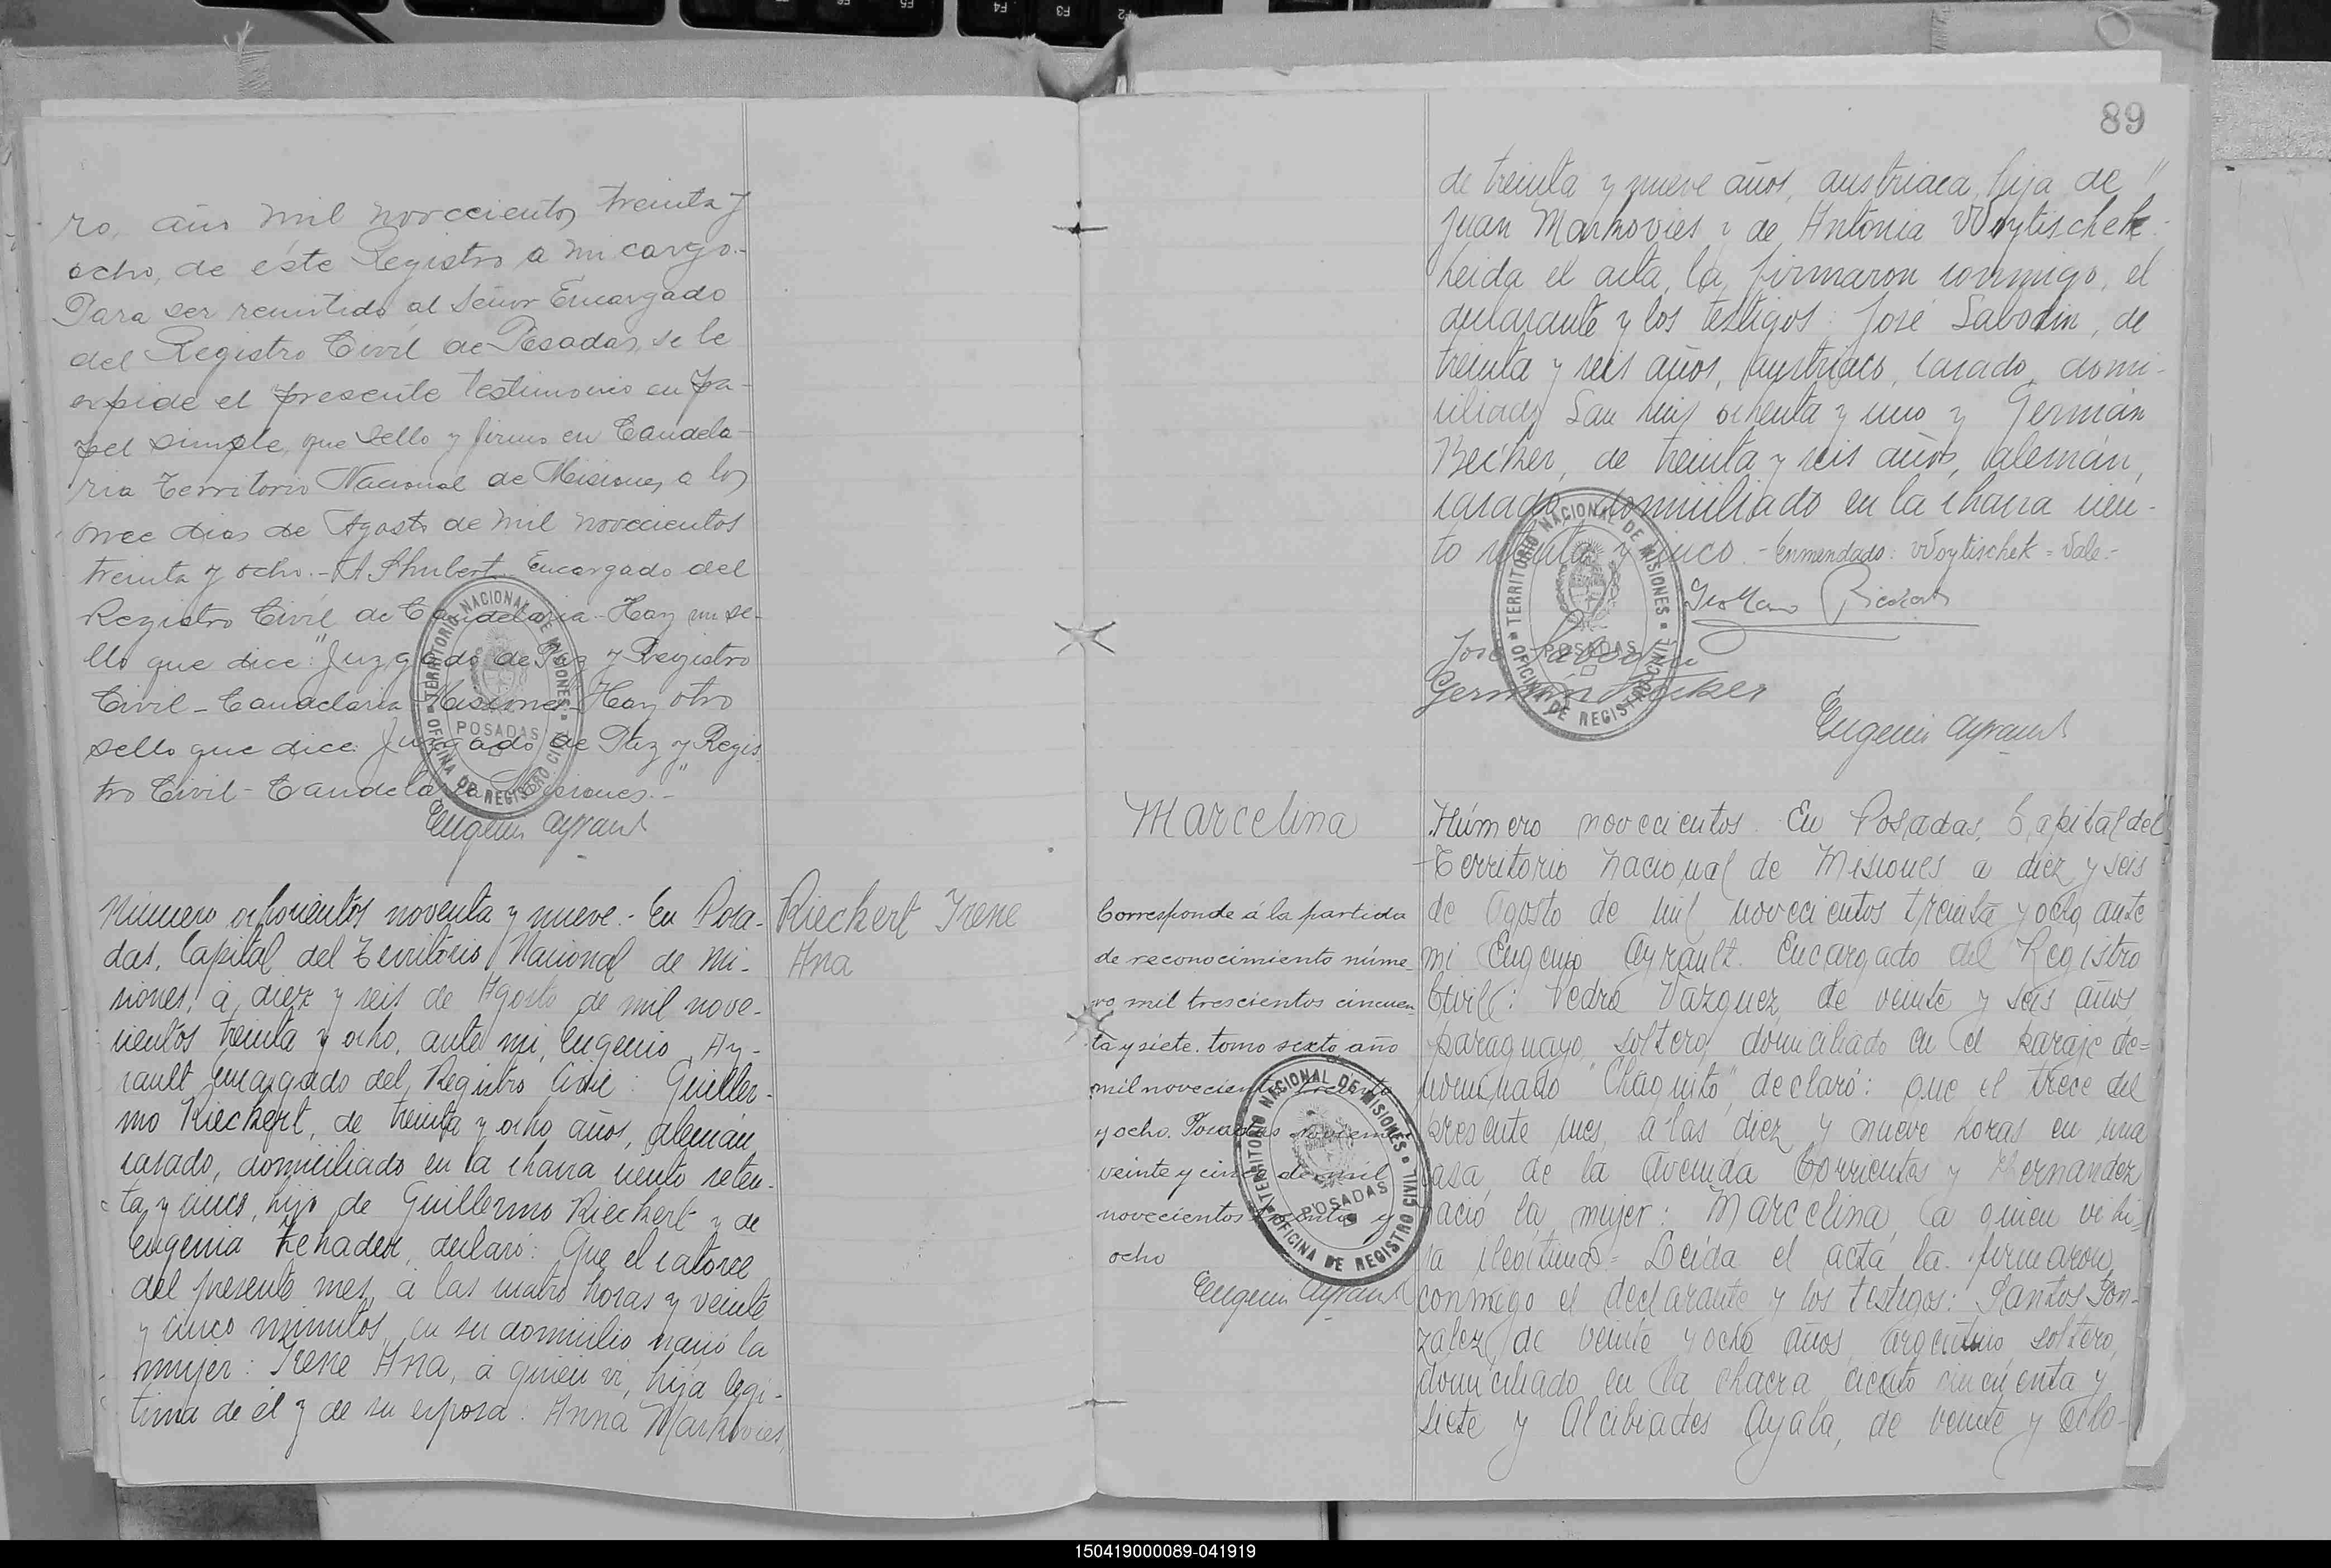 ro, año mil novecientos treinta y
ocho, de éste Registro a mi cargo.-
Para ser remitido al Señor Encargado
del Registro Civil de Posadas, se le
expide el presente testimonio en pa-
pel simple, que sello y firmo en Candela-
ria Territorio Nacional de Misiones a los
once dias de Agosto de mil novecientos
treinta y ocho.- A Shubert Encargado del
Registro Civil de Candelaria - Hay un se-
llo que dice: "Juzgado de Paz y Registro
Civil - Candelaria - Misiones - Hay otro
sello que dice: Juzgado de Paz y Regis-
tro Civil - Candelaria Misiones."-
Eugenio Ayrault
TERRITORIO NACIONAL DE MISIONES
POSADAS
OFICINA DE REGISTRO CIVIL
Riechert Irene
Ana
Número ochocientos noventa y nueve.- En Posa-
das, Capital del Territorio Nacional de Mi-
siones, a diez y seis de Agosto de mil nove-
cientos treinta y ocho, ante mi, Eugenio Ay-
rault Encargado del Registro Civil: Guiller-
mo Riechert, de treinta y ocho años, alemán,
casado, domiciliado en la chacra ciento seten-
ta y cinco, hijo de Guillermo Riechert y de
Eugenia declaró: Que el catorce
del presente mes, a las cuatro horas y veinte
y cinco minutos, en su domicilio nació la
mujer: Irene Ana, a quien vi, hija legi-
tima de él y de su esposa: Anna Markovies,
89
de treinta y nueve años, austriaca, hija de
Juan Markovies y de Antonia Woytischek.
Leida el acta, la firmaron conmigo, el
declarante y los testigos: José Sabodin, de
treinta y seis años, austriaco, casado, domi-
ciliado San Luis ochenta y uno y Germán
Becker, de treinta y seis años, alemán,
casado, domiciliado en la chacra cien-
to setenta y cinco.- Enmendado: Woytischek = Vale.-
José Sabodin
Germán Becker
Eugenio Ayrault
TERRITORIO NACIONAL DE MISIONES
POSADAS
OFICINA DE REGISTRO CIVIL
Marcelina
Corresponde á la partida
de reconocimiento núme-
ro mil trescientos cincuen-
ta y siete. tomo sexto, año
mil novecientos treinta
y ocho. Posadas noviembre
veinte y cinco de mil
novecientos treinta y
ocho
Eugenio Ayrault
TERRITORIO NACIONAL DE MISIONES
POSADAS
OFICINA DE REGISTRO CIVIL
Número novecientos. En Posadas, Capital del
Territorio Nacional de Misiones a diez y seis
de Agosto de mil novecientos treinta y ocho, ante
mi Eugenio Ayrault. Encargado del Registro
Civil: Pedro Vazquez, de veinte y seis años,
paraguayo, soltero, domiciliado en el paraje de=
nominado "Chaquito", declaró: que el trece del
presente mes, a las diez y nueve horas en una
casa, de la Avenida Corrientes y Hernandez
nació la mujer: Marcelina, a quien vi hi-
ja ilegitima = Leida el acta la firmaron
conmigo el declarante y los testigos: Santos Gon-
zalez, de veinte y ocho años, argentino, soltero,
domiciliado en la chacra ciento cincuenta y
siete y Alcibiades Ayala, de veinte y ocho-
150419000089-041919